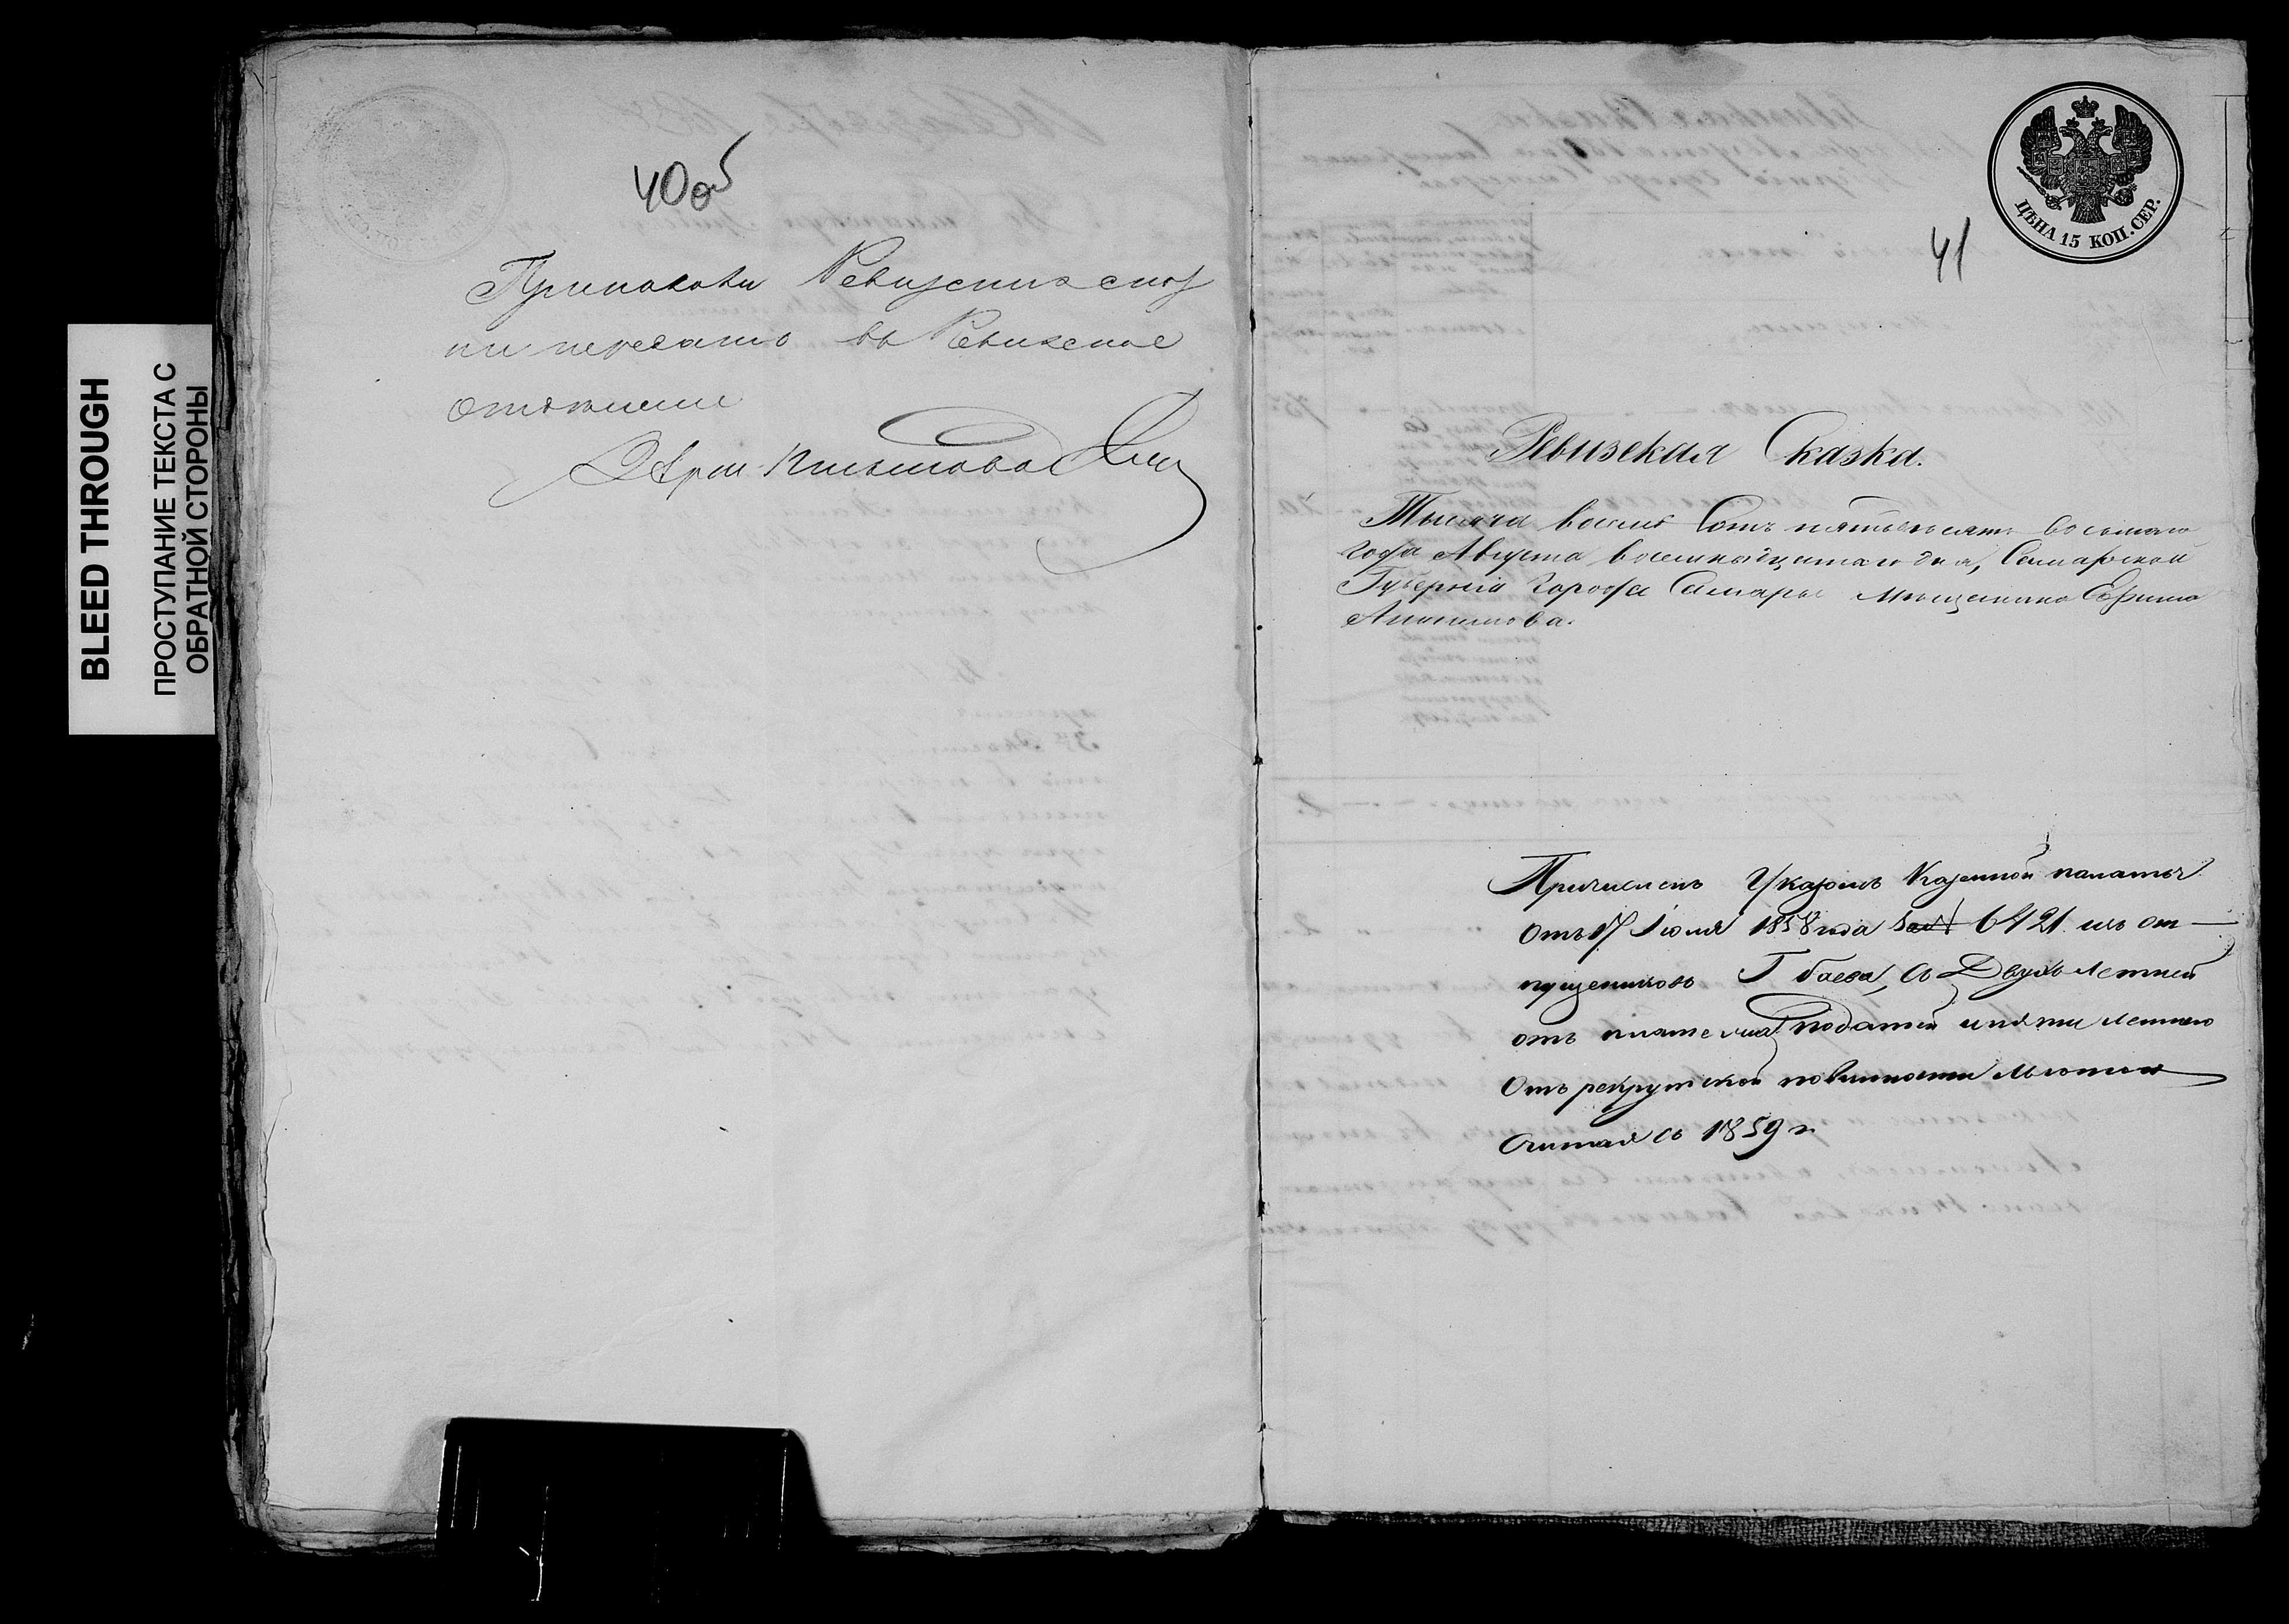 BLEED THROUGH
ПРОСТУПАНИЕ ТЕКСТА С
ОБРАТНОЙ СТОРОНЫ
40 об
Ревизских
передать въ Ревизское
ЦѢНА 15 КОП. СЕР.
41
Ревизская Сказка.
Тысяча восемь Сотъ пятьдесятъ восьмаго
Года Августа восемнадцатаго дня, Самарской
Губерніи Города Самары мѣщанина Ефима
Анисимова.
Причисленъ Указомъ Казенной палаты
Отъ 17 Іюля 1858 года за № 6421 изъ от-
пущенниковъ Г баева, съ Двухъ летней
отъ платежа податей и пяти летнею
Отъ рекрутской повинности льготою
Считая съ 1859 г.